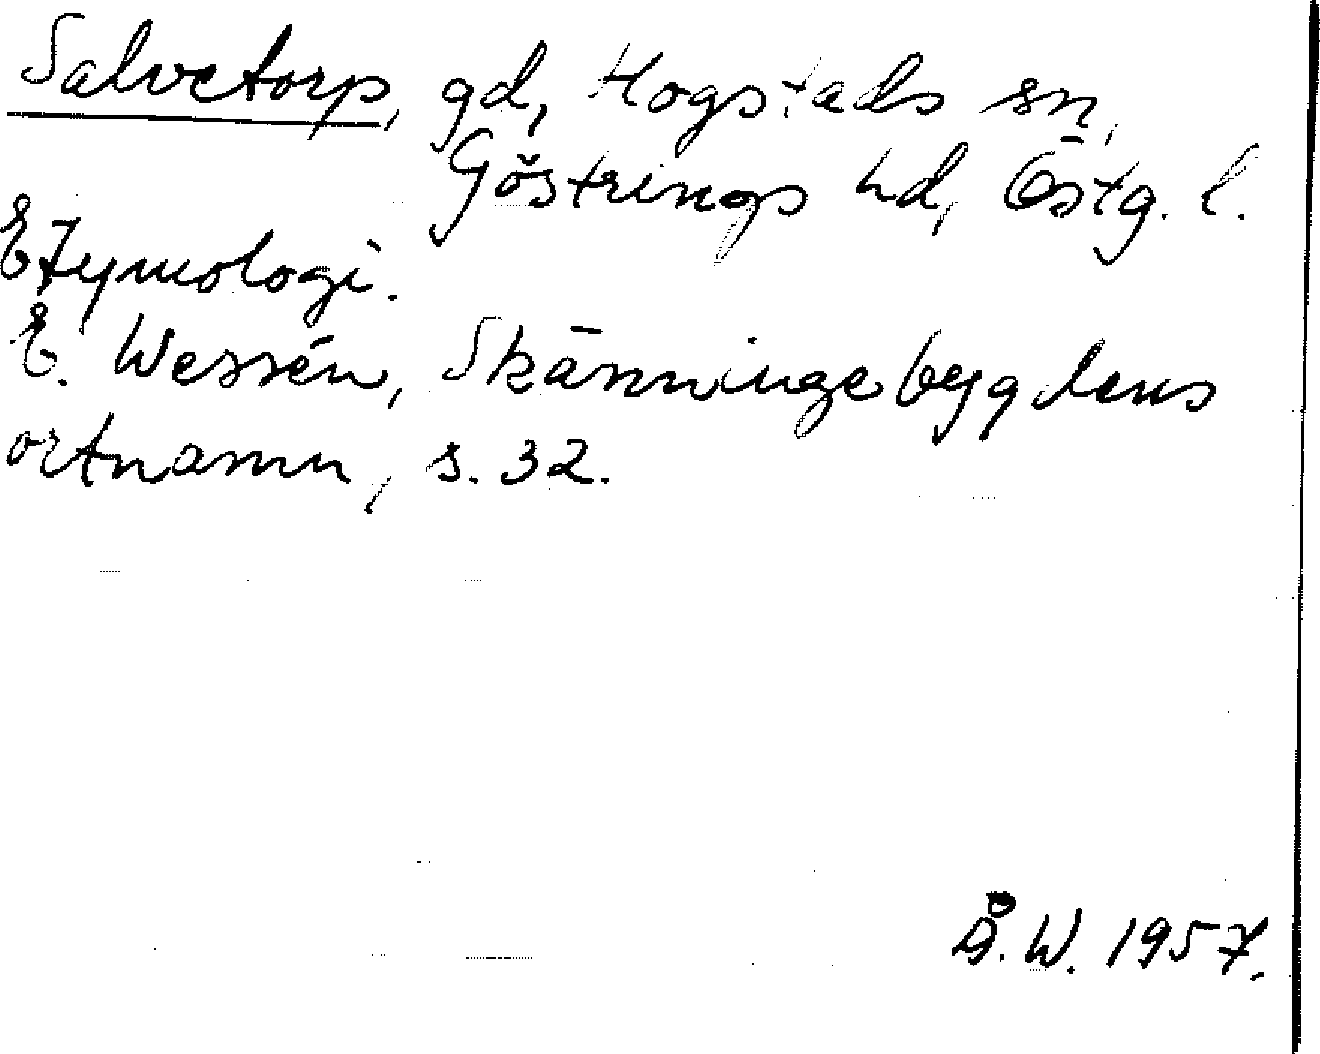 Salvetorp, gd, Hogstads sn,
Göstrings hd, Östg. l.
Etymologi.
E. Wessén, Skänningebygdens
ortnamn, s. 32.
Å. W. 1957.